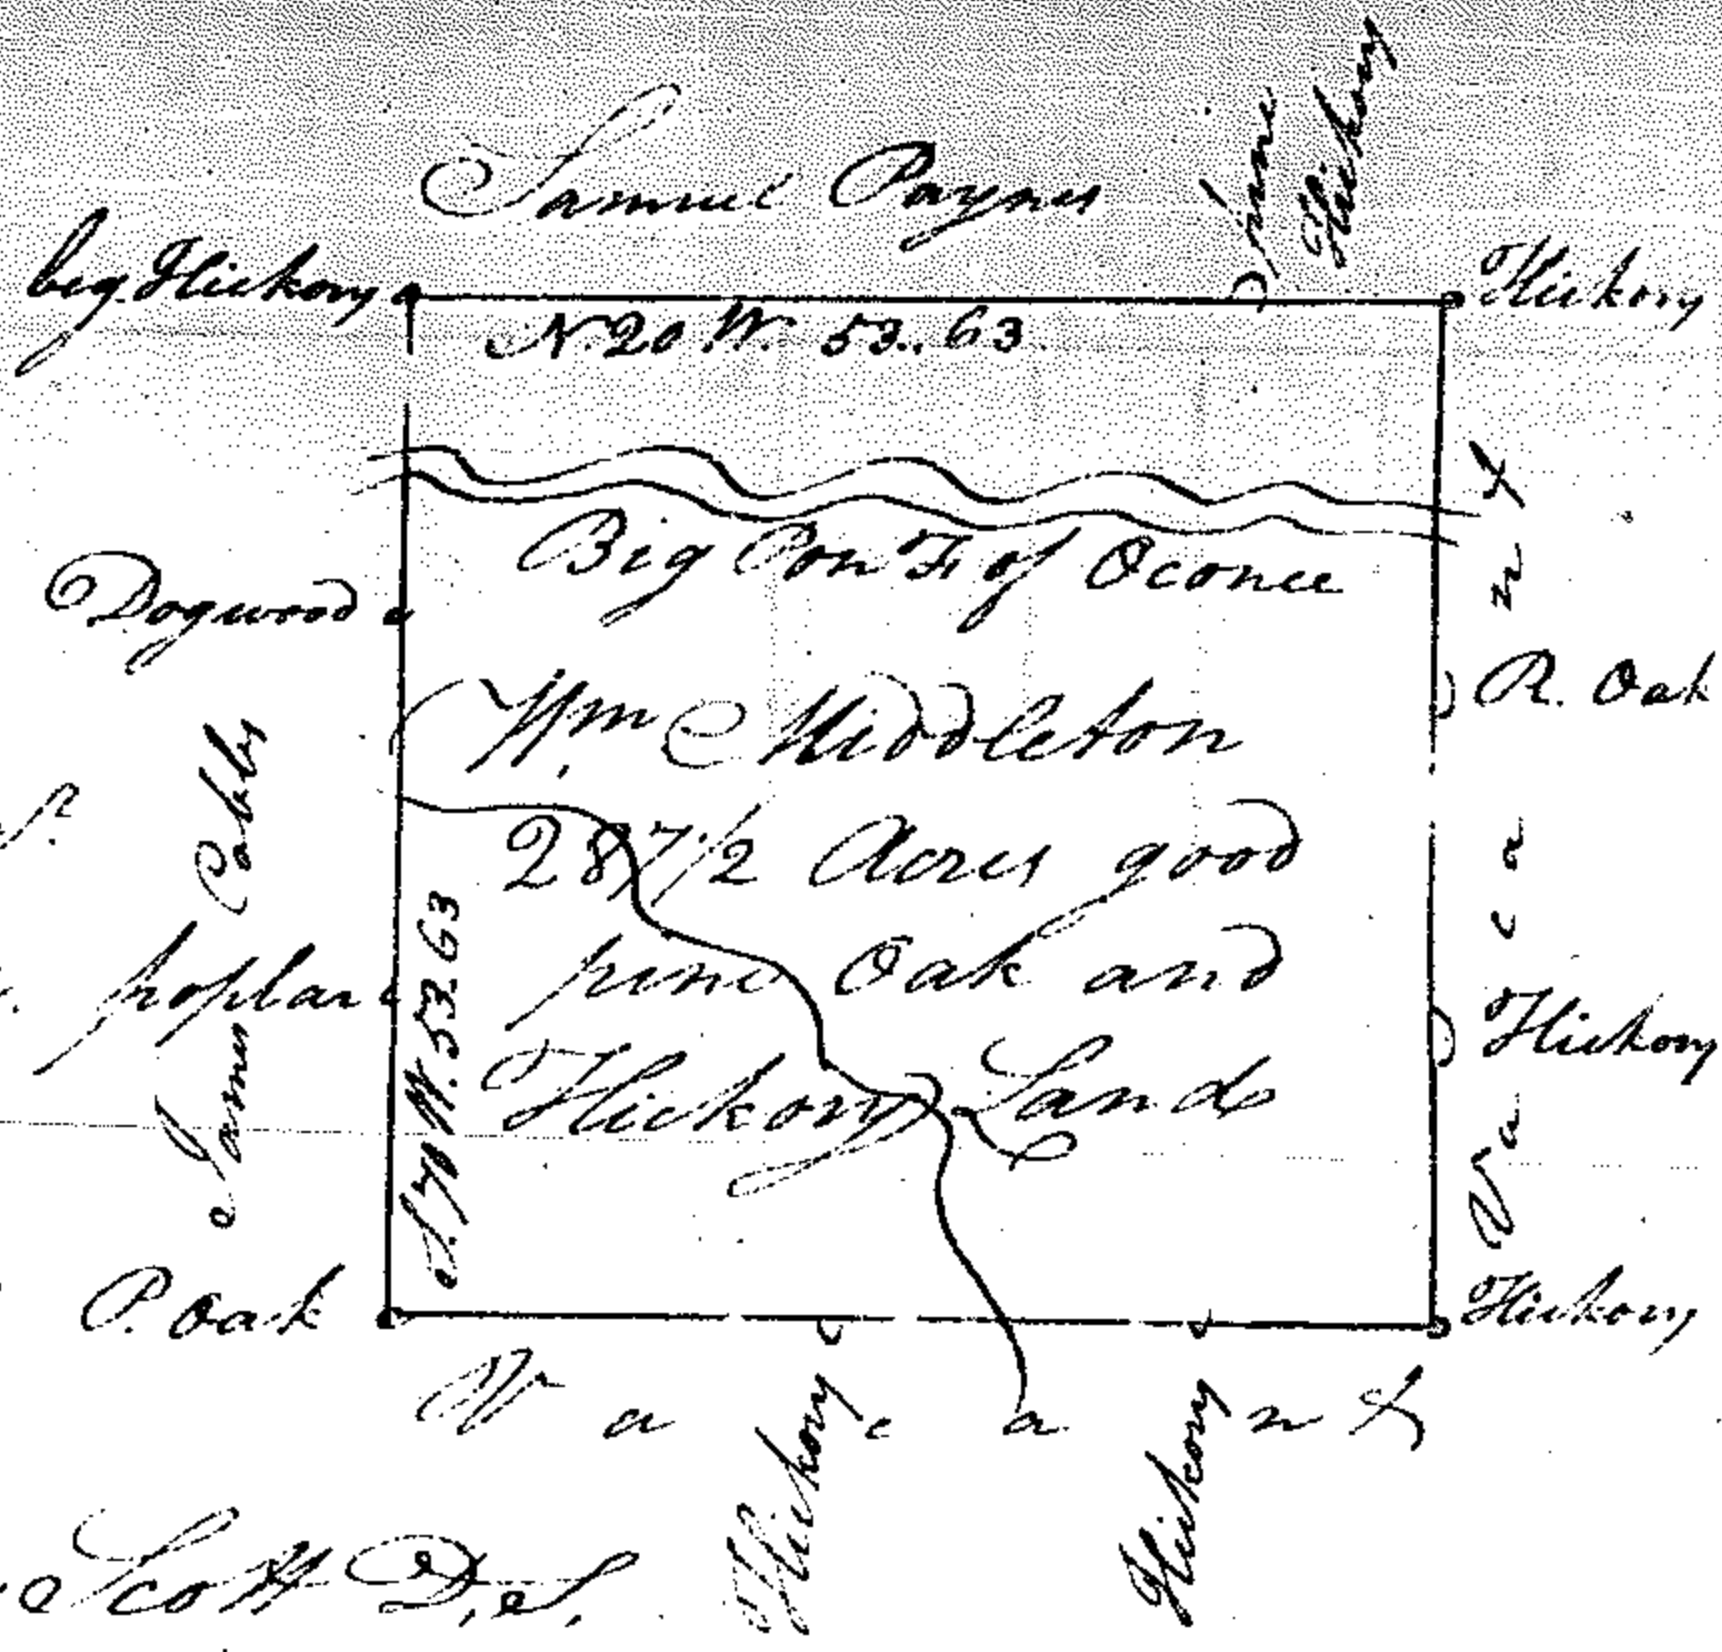 Samuel Paynes
pine
Hickory
beg. Hickory
Hickory
N. 20 W. 53..63
Big Pon F. of Oconee
Dogwood
R. Oak
Wm Middleton
287 1/2 Acres good
pine Oak and
Hickory Land
James Cobbs
poplar
S. 70 W. 53.63
Vacant
Hickory
P. Oak
Hickory
Vacant
Hickory
Hickory
Scott D.S.